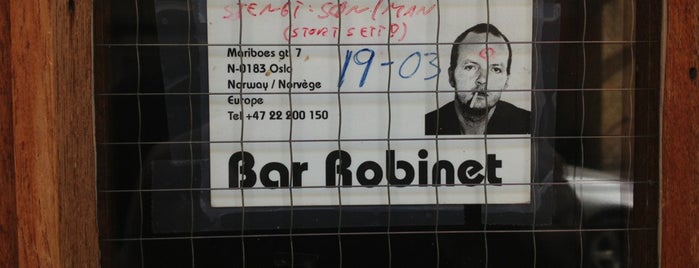 STENGT: SØN/MAN
(STORT SETT!)
Mariboes gt. 7
N-0183 Oslo
Norway / Norvège
Europe
Tel +47 22 200 150
19-03
Bar Robinet